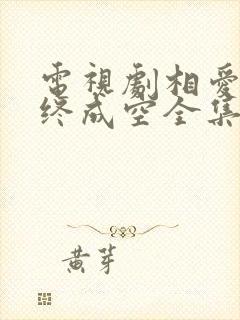 電視劇相愛
終成空全集
黄芽